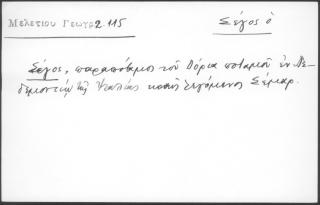 Μελετίου Γεωγρ 2.115
Σέγος ὁ
Σέγος, παραπόταμος τοῦ Δόρια ποταμοῦ ἐν Πε-
δεμοντίῳ τῆς Ἰταλίας κοινῶς λεγόμενος